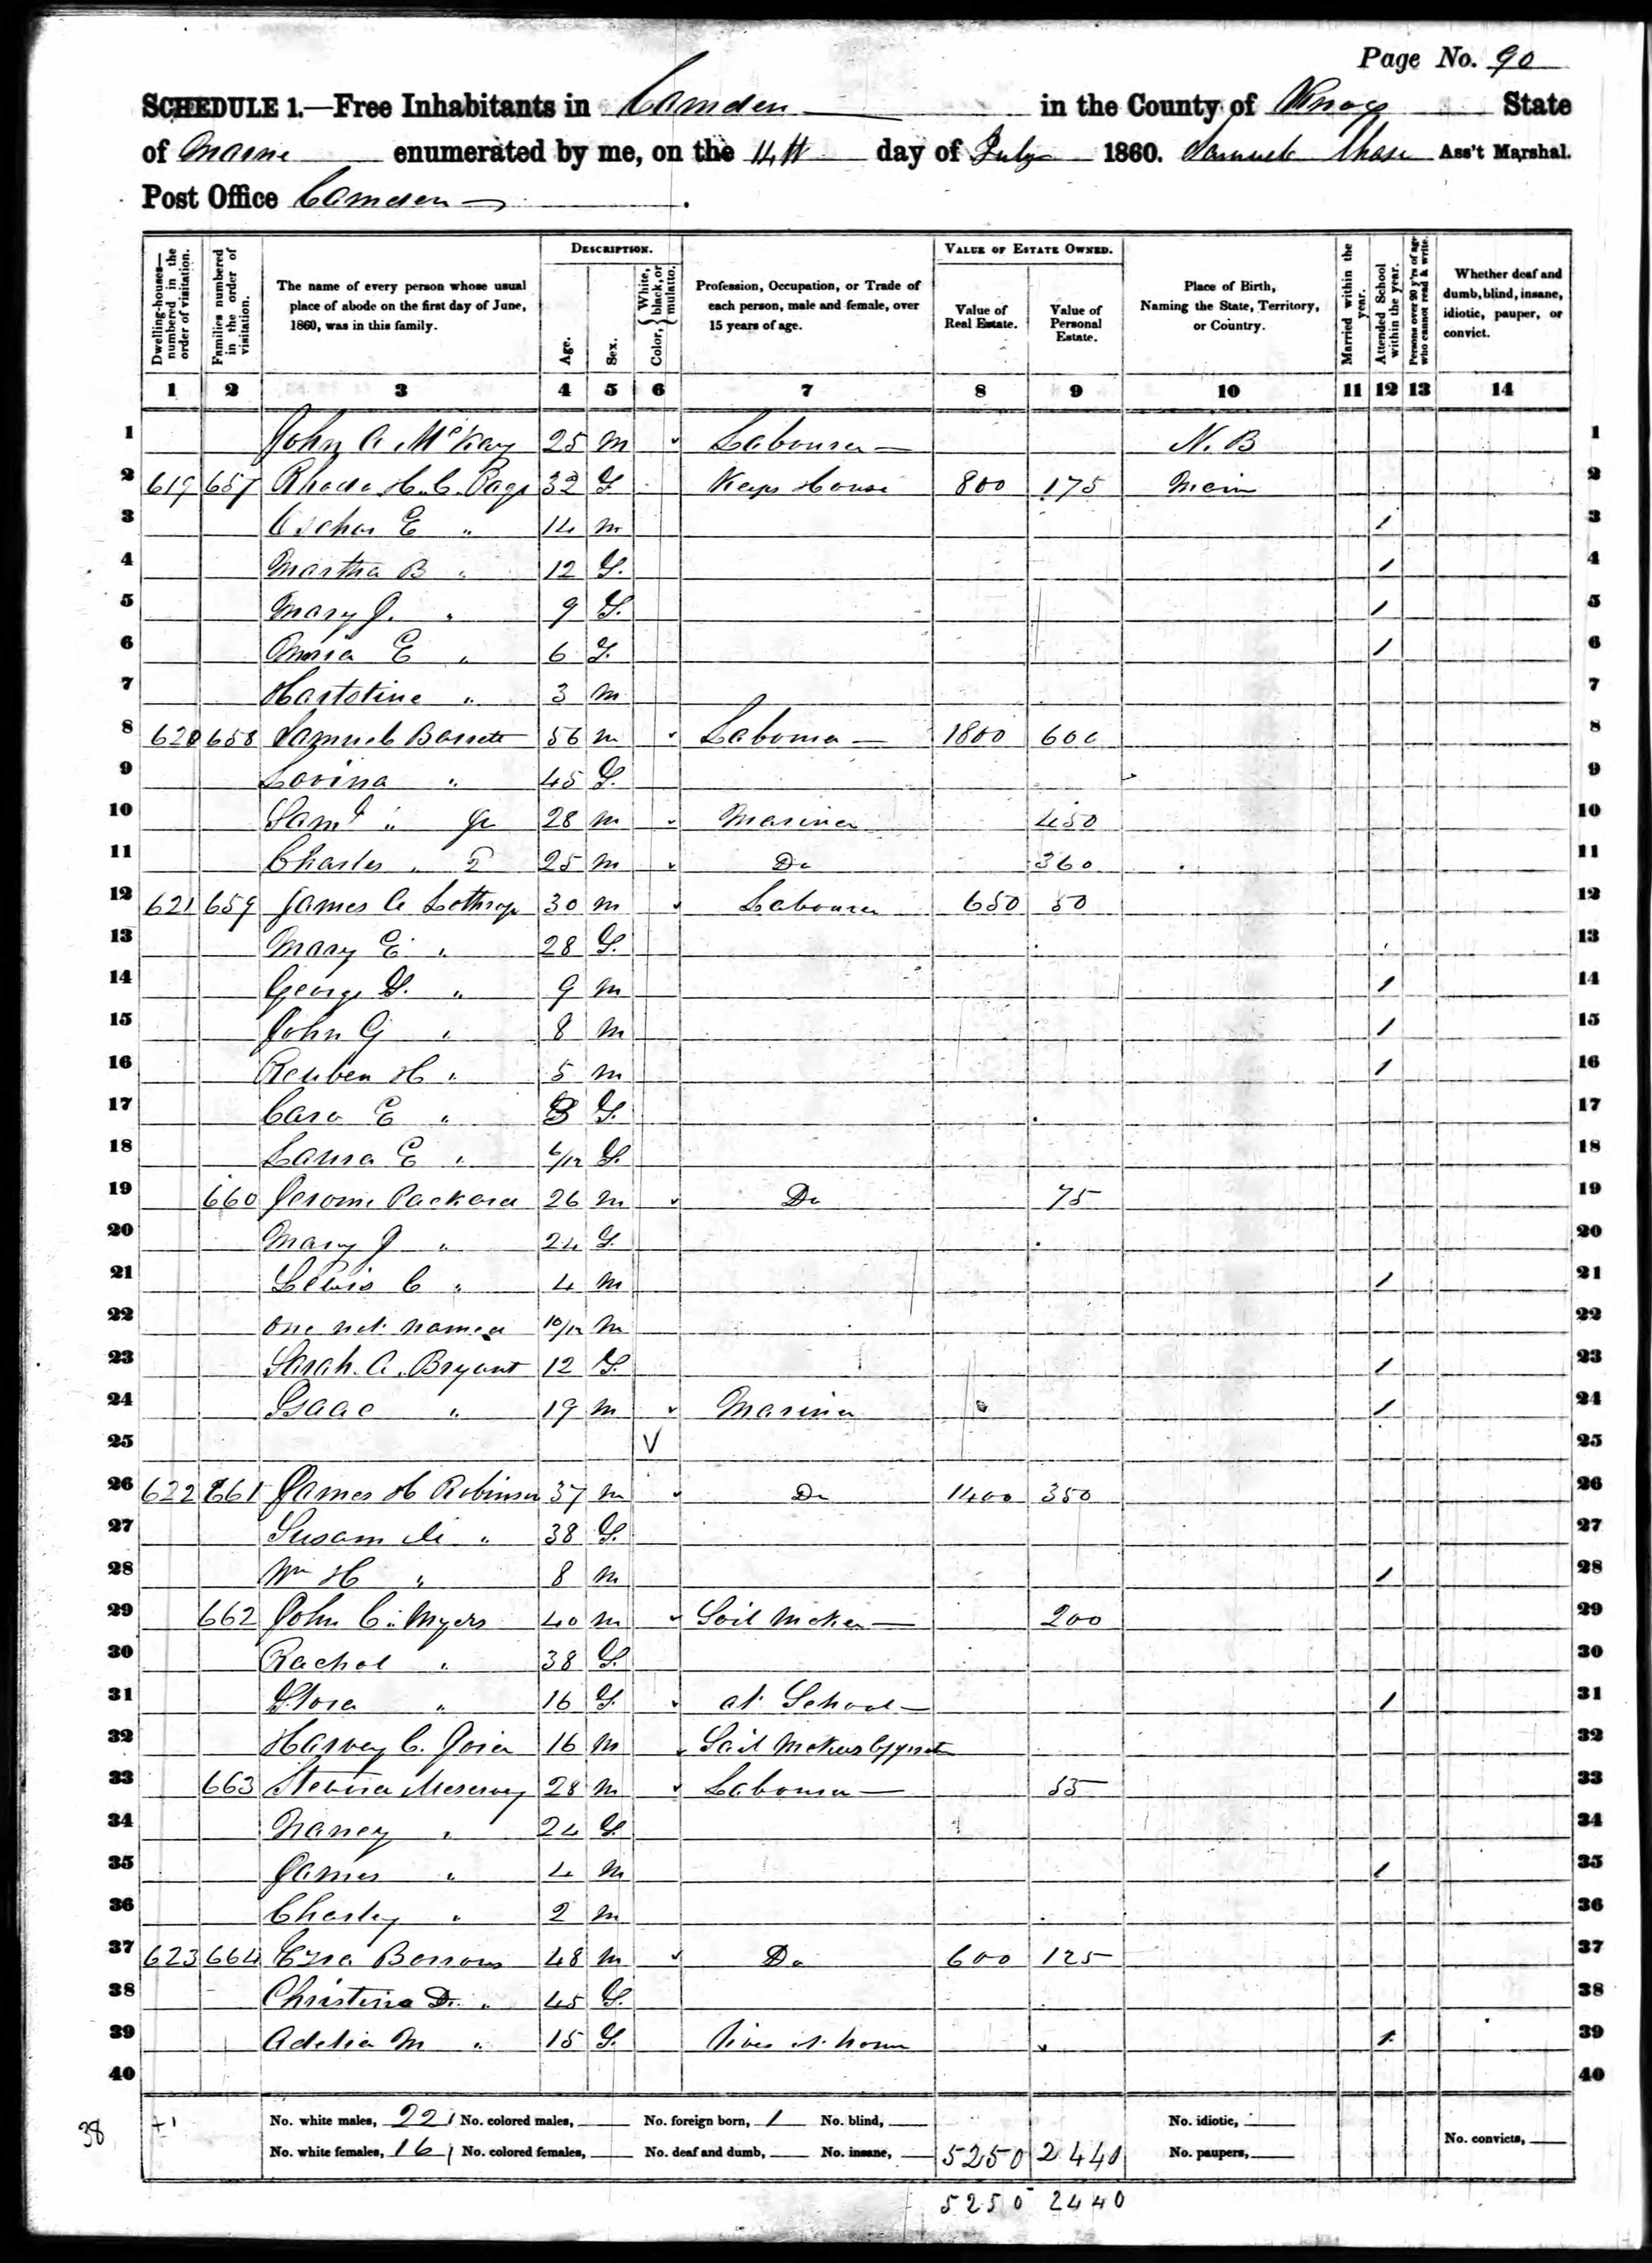 Page No. 90
SCHEDULE 1.—Free Inhabitants in Camden in the County of Knox State
of Maine enumerated by me, on the 14th day of July 1860. Samuel Chase Ass't Marshal.
Post Office Camden.
DESCRIPTION. VALUE OF ESTATE OWNED.
Dwelling-houses—numbered in the order of visitation. Families numbered in the order of visitation. The name of every person whose usual place of abode on the first day of June, 1860, was in this family. Age. Sex. Color, { White, black, or mulatto. Profession, Occupation, or Trade of each person, male and female, over 15 years of age. Value of Real Estate. Value of Personal Estate. Place of Birth, Naming the State, Territory, or Country. Married within the year. Attended School within the year. Persons over 20 y'rs of age who cannot read & write. Whether deaf and dumb, blind, insane, idiotic, pauper, or convict.
1 2 3 4 5 6 7 8 9 10 11 12 13 14
1 John A McKay 25 m Labourer N. B 1
2 619 657 Rhoda H. C. Page 32 F Keeps House 800 175 Main 2
3 E " 14 m / 3
4 Martha B " 12 F. / 4
5 Mary J. " 9 F. / 5
6 E " 6 F. / 6
7 " 3 m 7
8 620 658 Samuel Barrett 56 m Labourer 1800 600 8
9 Lovina " 45 F. 9
10 Saml " Jr 28 m Mariner 450 10
11 Charles " 25 m Do 360 11
12 621 659 James A Lothrop 30 m Labourer 650 50 12
13 Mary E " 28 F. 13
14 George F. " 9 m / 14
15 John G " 8 m / 15
16 Reuben H " 5 m / 16
17 Cara E " 3 F. 17
18 Laura E " 6/12 F. 18
19 660 Jerome Packard 26 m Do 75 19
20 Mary J " 24 F. 20
21 Lewis C " 4 m / 21
22 One not named 10/12 m 22
23 Sarah A. Bryant 12 F. / 23
24 Isaac " 19 m Mariner / 24
25 V 25
26 622 661 James H Robinson 37 m Do 1400 350 26
27 Susan " 38 F. 27
28 Wm H " 8 m / 28
29 662 John C. Myers 40 m Sail Maker 200 29
30 Rachel " 38 F. 30
31 Flora " 16 F. at School / 31
32 Harvey C. 16 m Sail Makers 32
33 663 28 m Labourer 55 33
34 Nancy " 24 F. 34
35 James " 4 m / 35
36 Charley " 2 m 36
37 623 664 Ezra Barrows 48 m Do 600 125 37
38 Christina D. " 45 F. 38
39 Adelia M " 15 F. lives at home / 39
40 40
38 +1 No. white males, 22 No. colored males, No. foreign born, 1 No. blind, No. idiotic,
No. white females, 16 No. colored females, No. deaf and dumb, No. insane, 5250 2440 No. paupers, No. convicts,
5250 2440